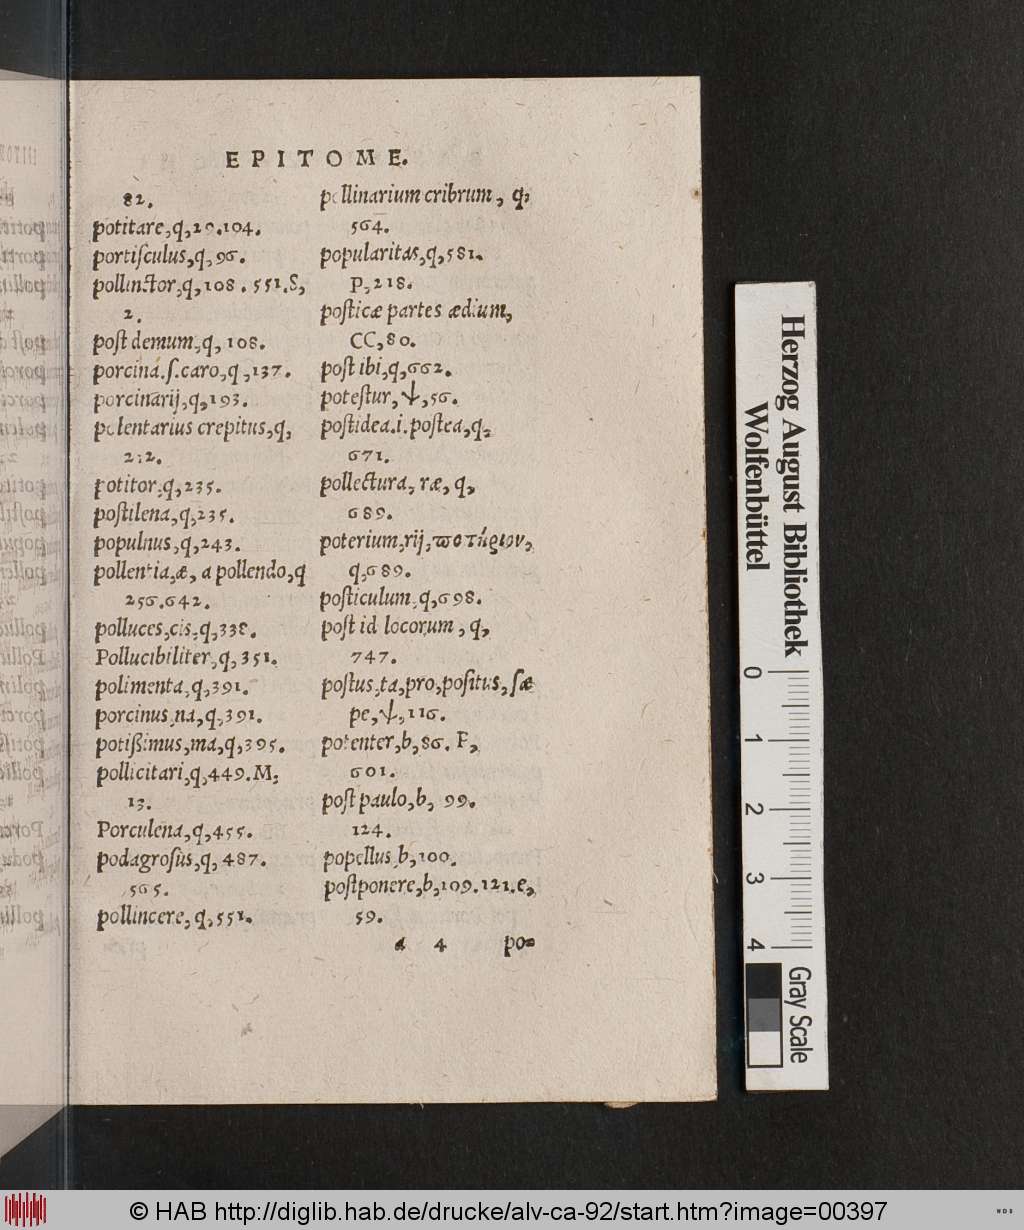 EPITOME.
82.
potitare,q,29.104.
portiſculus,q,96.
pollinctor,q,108. 551.S,
2.
poſt demum,q, 108.
porcina.ſ.caro,q,137.
porcinarij,q,193.
polentarius crepitus,q,
2:2.
potitor,q,235.
poſtilena,q,235.
populnus,q,243.
pollentia,æ, a pollendo,q
256.642.
polluces,cis,q,338.
Pollucibiliter,q,351.
polimenta,q,391.
porcinus,na,q,391.
potißimus,ma,q,395.
pollicitari,q,449.M,
13.
Porculena,q,455.
podagroſus,q,487.
565.
pollincere,q,551.
pollinarium cribrum, q,
564.
popularitas,q,581.
P,218.
poſticæ partes ædium,
CC,80.
poſt ibi,q,662.
poteſtur,ψ,56.
poſtidea.i.poſtea,q,
671.
pollectura, ræ, q,
689.
poterium,rij,ποτήριον,
q,689.
poſticulum,q,698.
poſt id locorum, q,
747.
poſtus,ta,pro,poſitus,ſæ
pe,ψ,116.
potenter,b,86. P,
601.
poſt paulo,b, 99.
124.
popellus,b,100.
poſtponere,b,109.121.e,
59.
a 4 po=
Herzog August Bibliothek
Wolfenbüttel
0 1 2 3 4
Gray Scale
© HAB http://diglib.hab.de/drucke/alv-ca-92/start.htm?image=00397